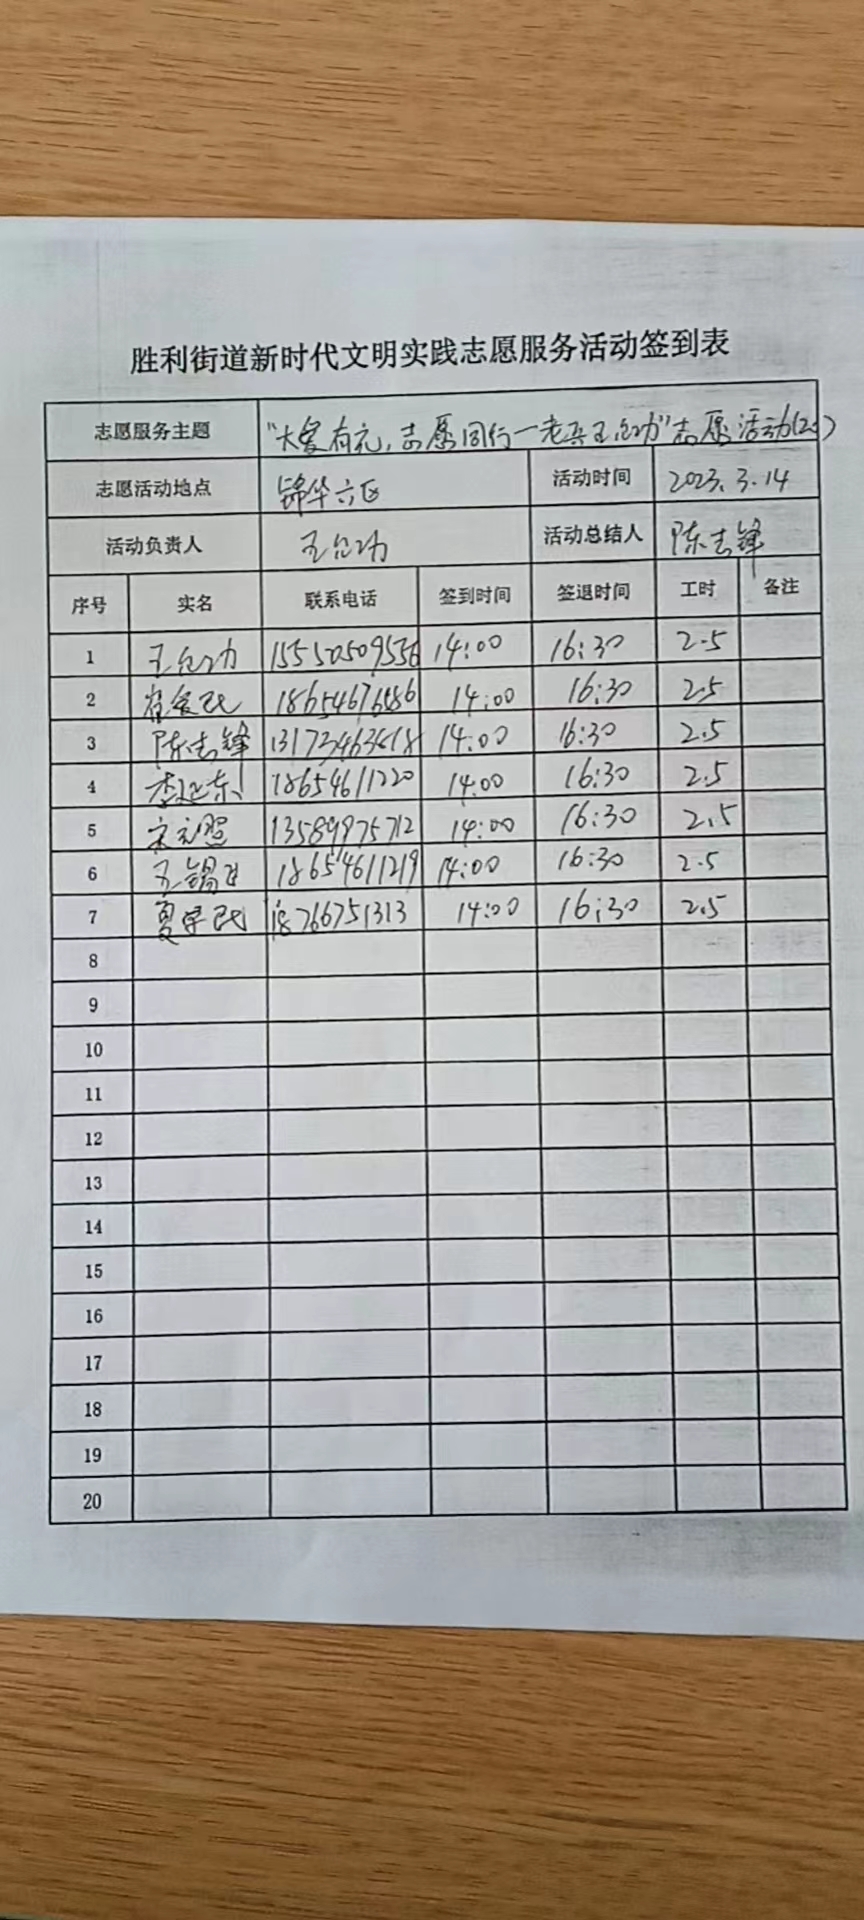 胜利街道新时代文明实践志愿服务活动签到表
志愿服务主题 "大爱有礼,志愿同行一老兵王允功"志愿活动(20)
志愿活动地点 锦华六区 活动时间 2023.3.14
活动负责人 王允功 活动总结人 陈志锋
序号 实名 联系电话 签到时间 签退时间 工时 备注
1 王允功 15550509536 14:00 16:30 2.5
2 14:00 16:30 2.5
3 陈志锋 14:00 16:30 2.5
4 李延东 18654611220 14:00 16:30 2.5
5 宋元照 13589975712 14:00 16:30 2.5
6 18654611219 14:00 16:30 2.5
7 18766751313 14:00 16:30 2.5
8
9
10
11
12
13
14
15
16
17
18
19
20